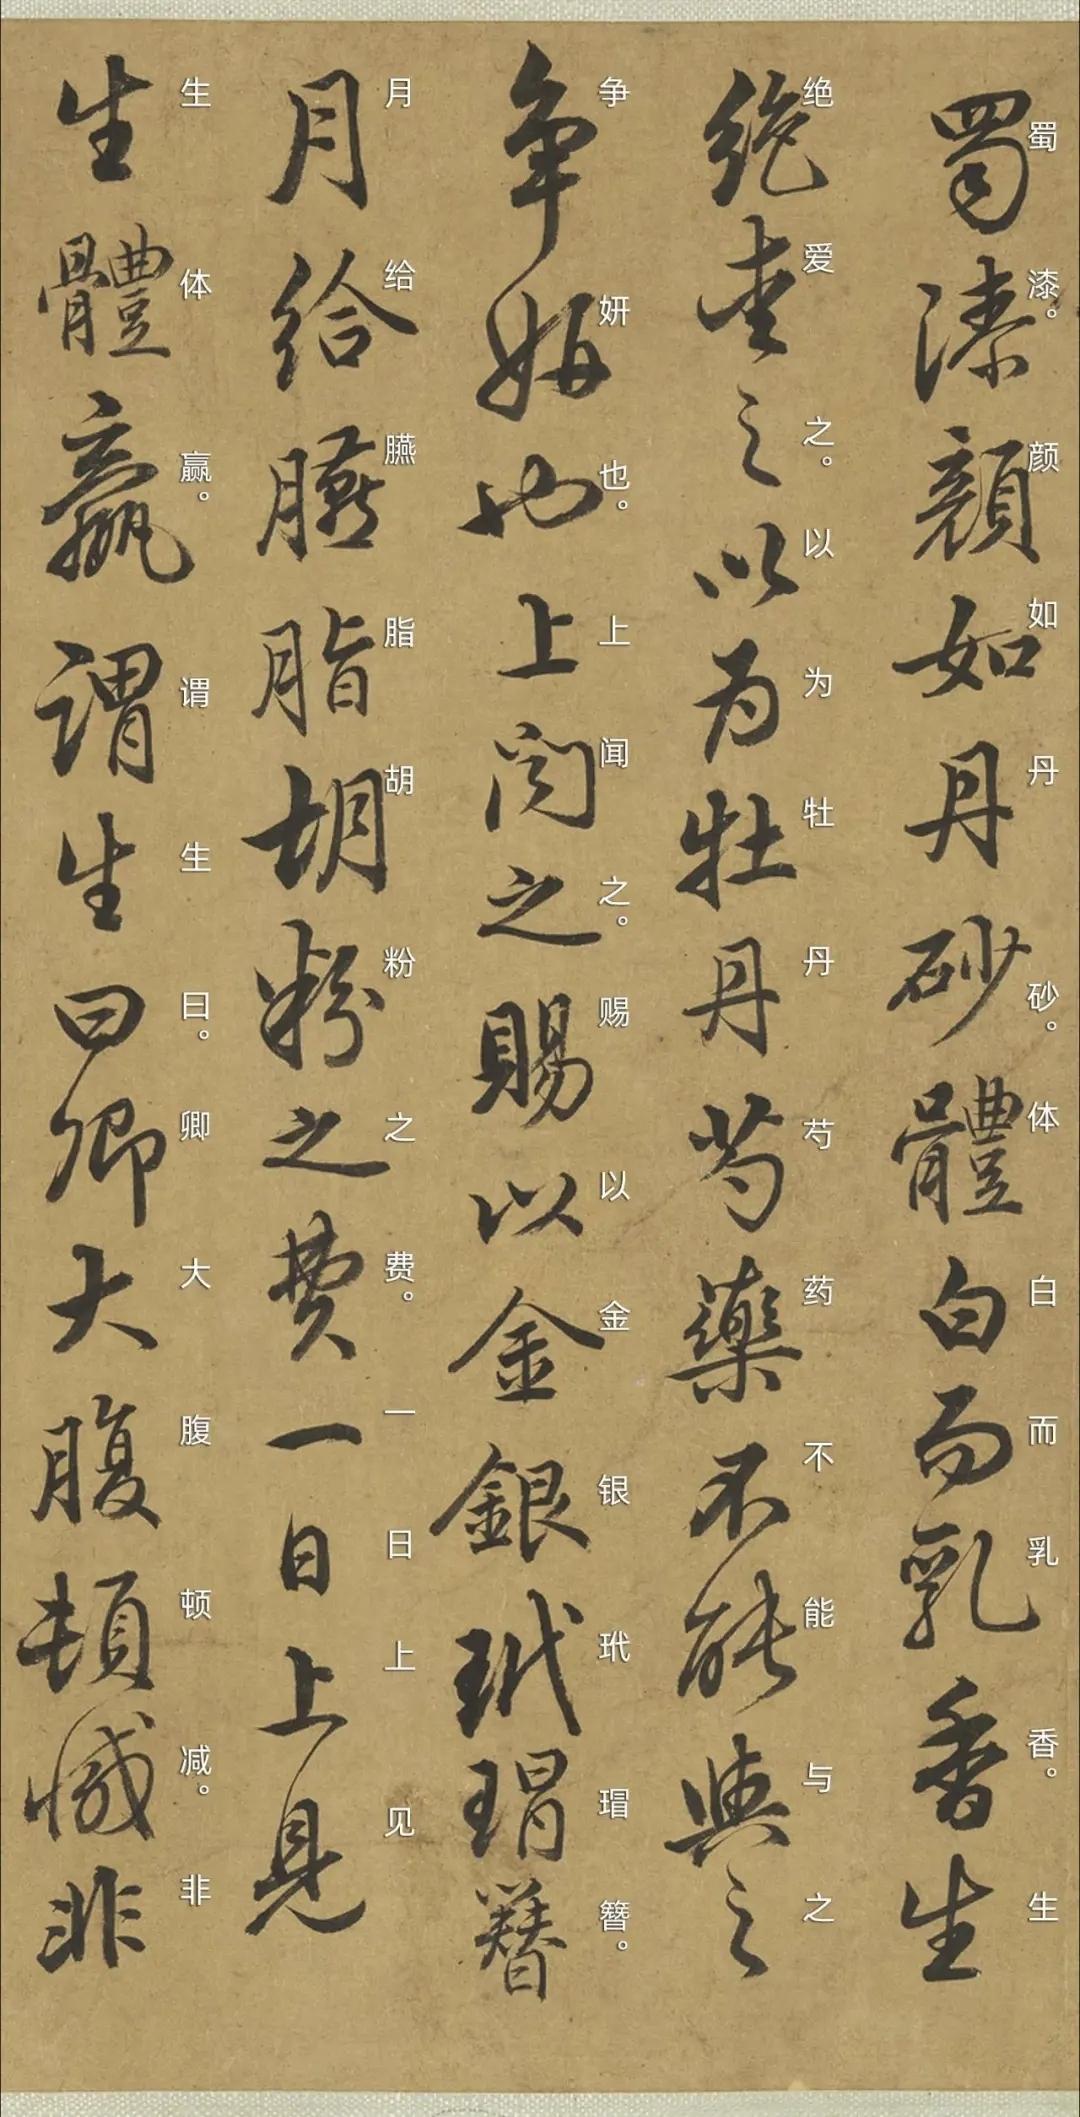 蜀漆顔如丹砂體白而乳香生
蜀漆。颜如丹砂。体白而乳香。生
絶愛之以为牡丹芍藥不能與之
绝爱之。以为牡丹芍药不能与之
争妍也上闻之賜以金銀玳瑁簪
争妍也。上闻之。赐以金银玳瑁簪。
月给臙脂胡粉之费一日上見
月给臙脂胡粉之费。一日上见
生體羸謂生曰卿大腹頓减非
生体赢。谓生曰。卿大腹顿减。非